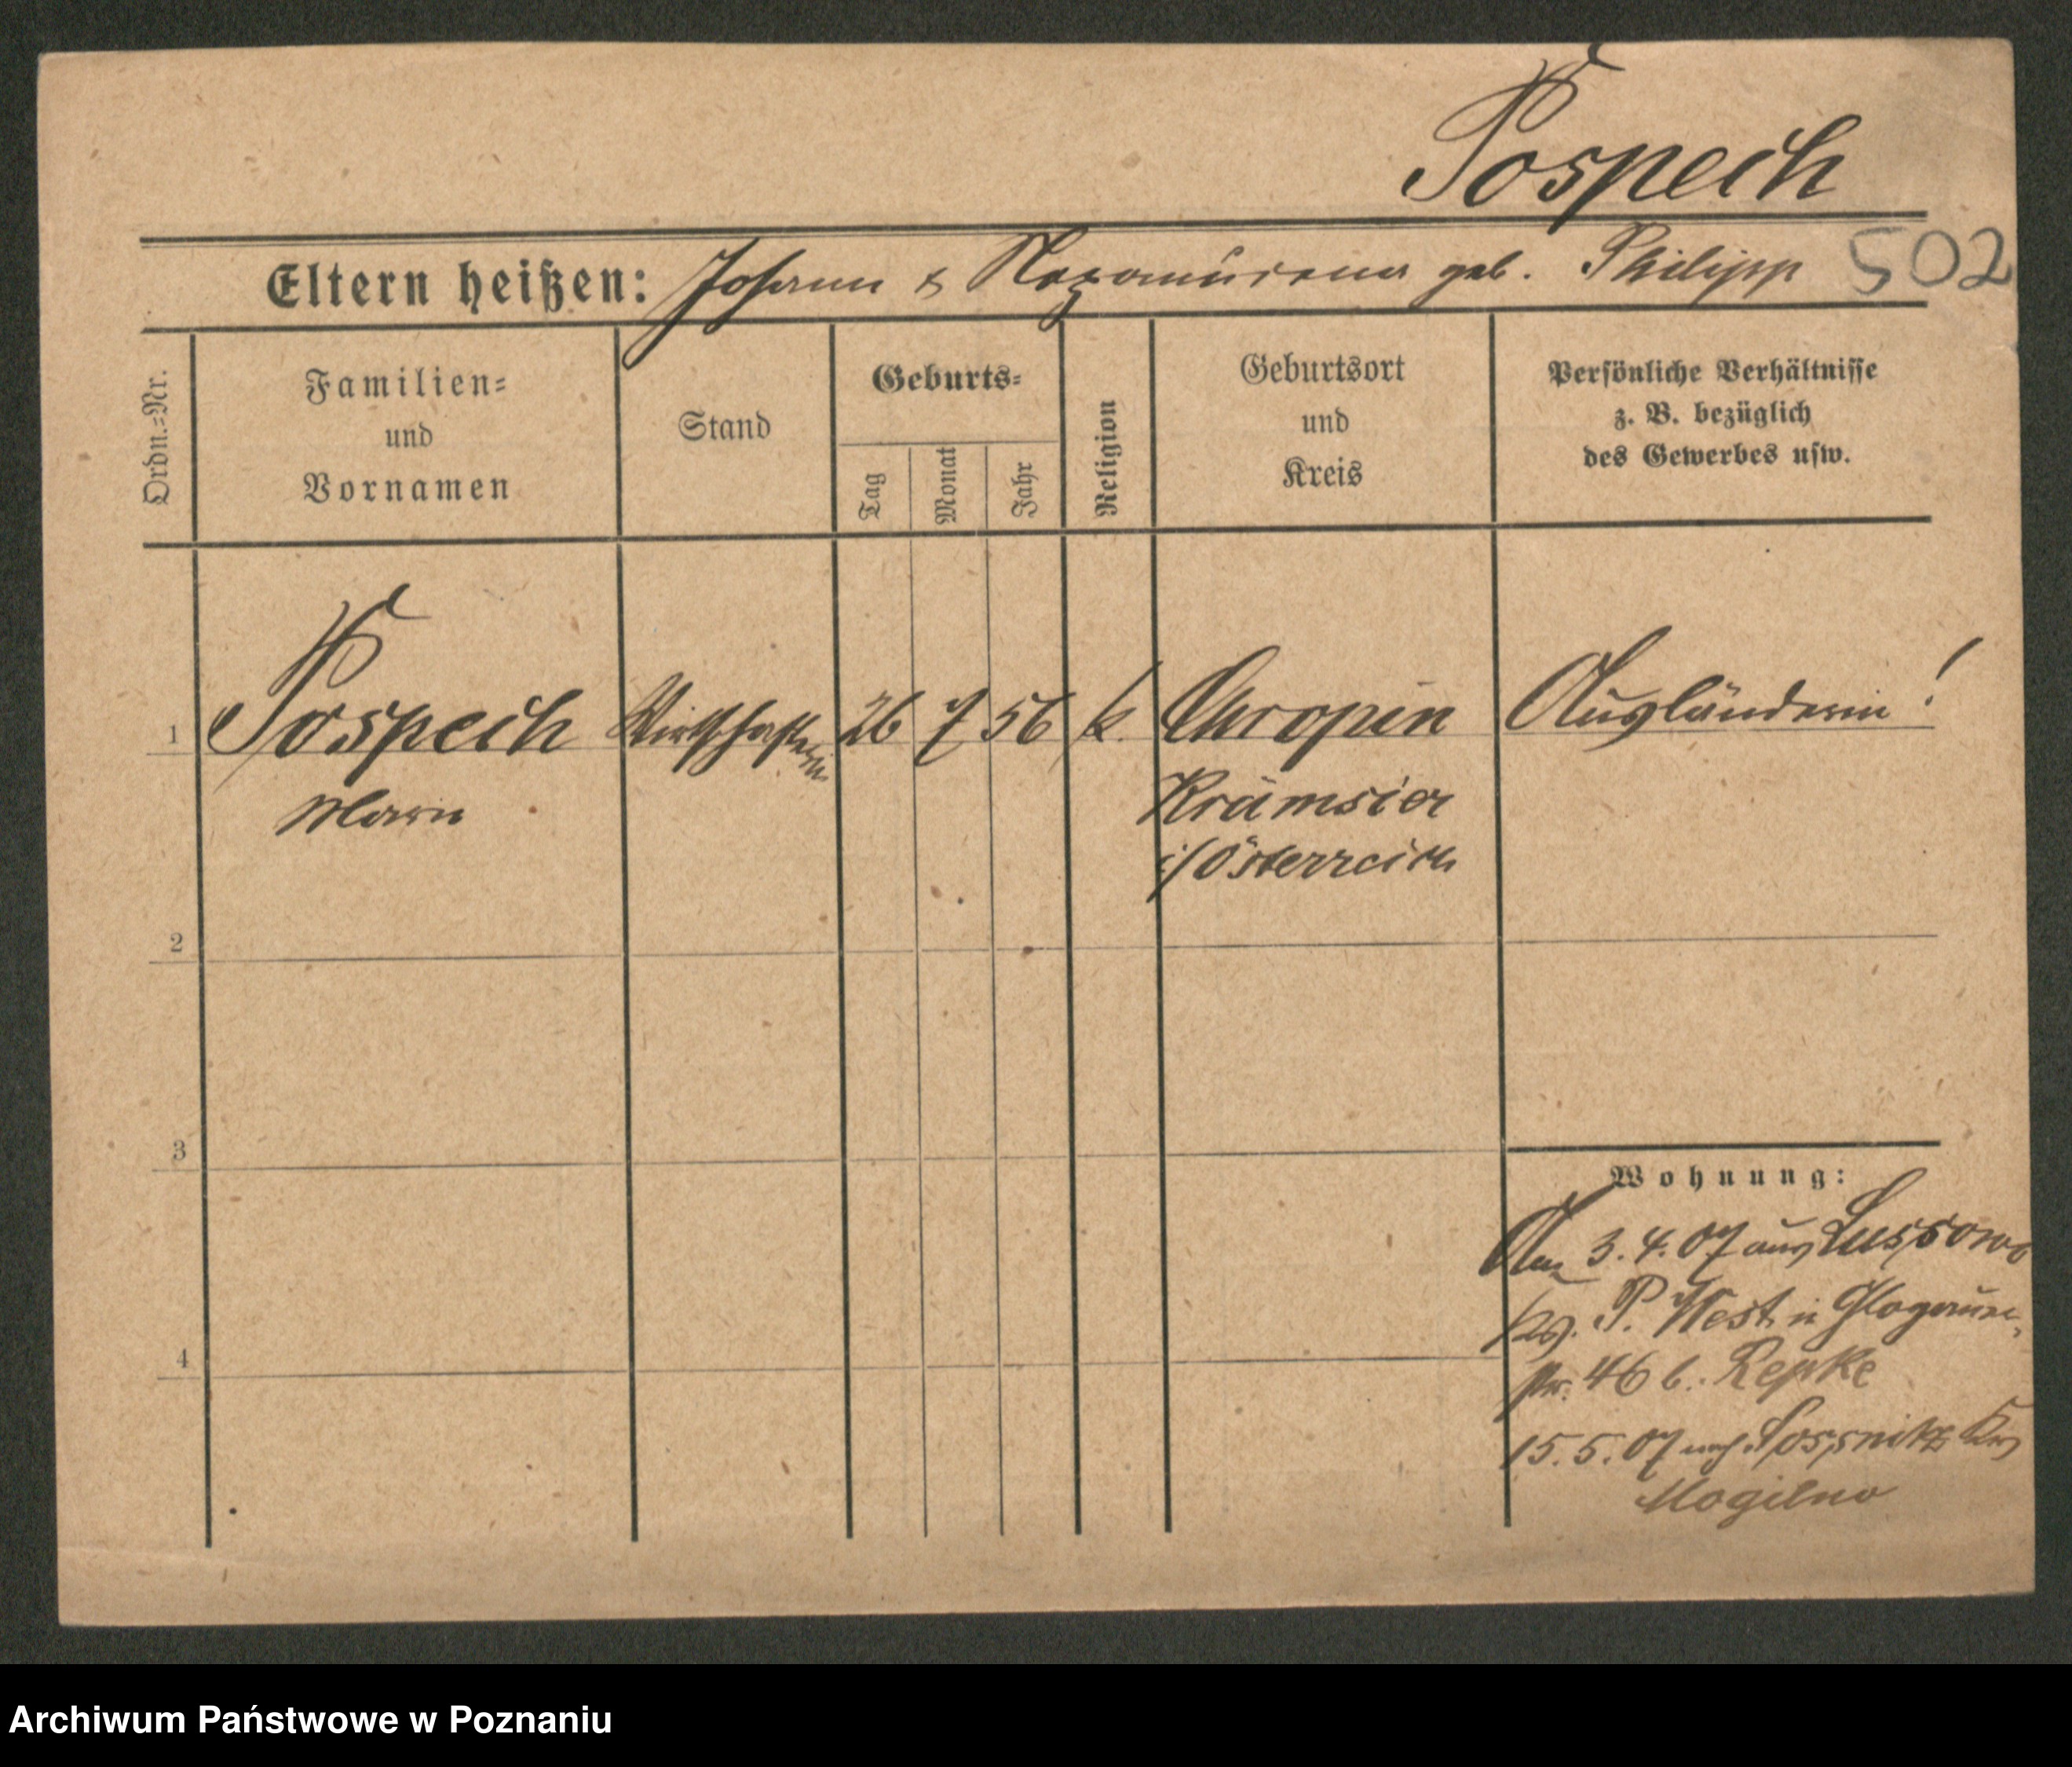 Pospech
Eltern heißen: Johann & geb. Philipp 502
Ordn.-Nr.
Familien-
und
Vornamen
Stand
Geburts-
Tag
Monat
Jahr
Religion
Geburtsort
und
Kreis
Persönliche Verhältnisse
z. B. bezüglich
des Gewerbes usw.
1 Pospech Wirtschafterin 26 7 56 k. Chropin Ausländerin!
Marie Krämsier
i/Österreich
2
3
4
Wohnung:
Am 3.4.07 aus Lussowo
Krs. P. West in Glogauer-
str. 46 b. Repke
15.5.07 nach Krs
Mogilno
Archiwum Państwowe w Poznaniu